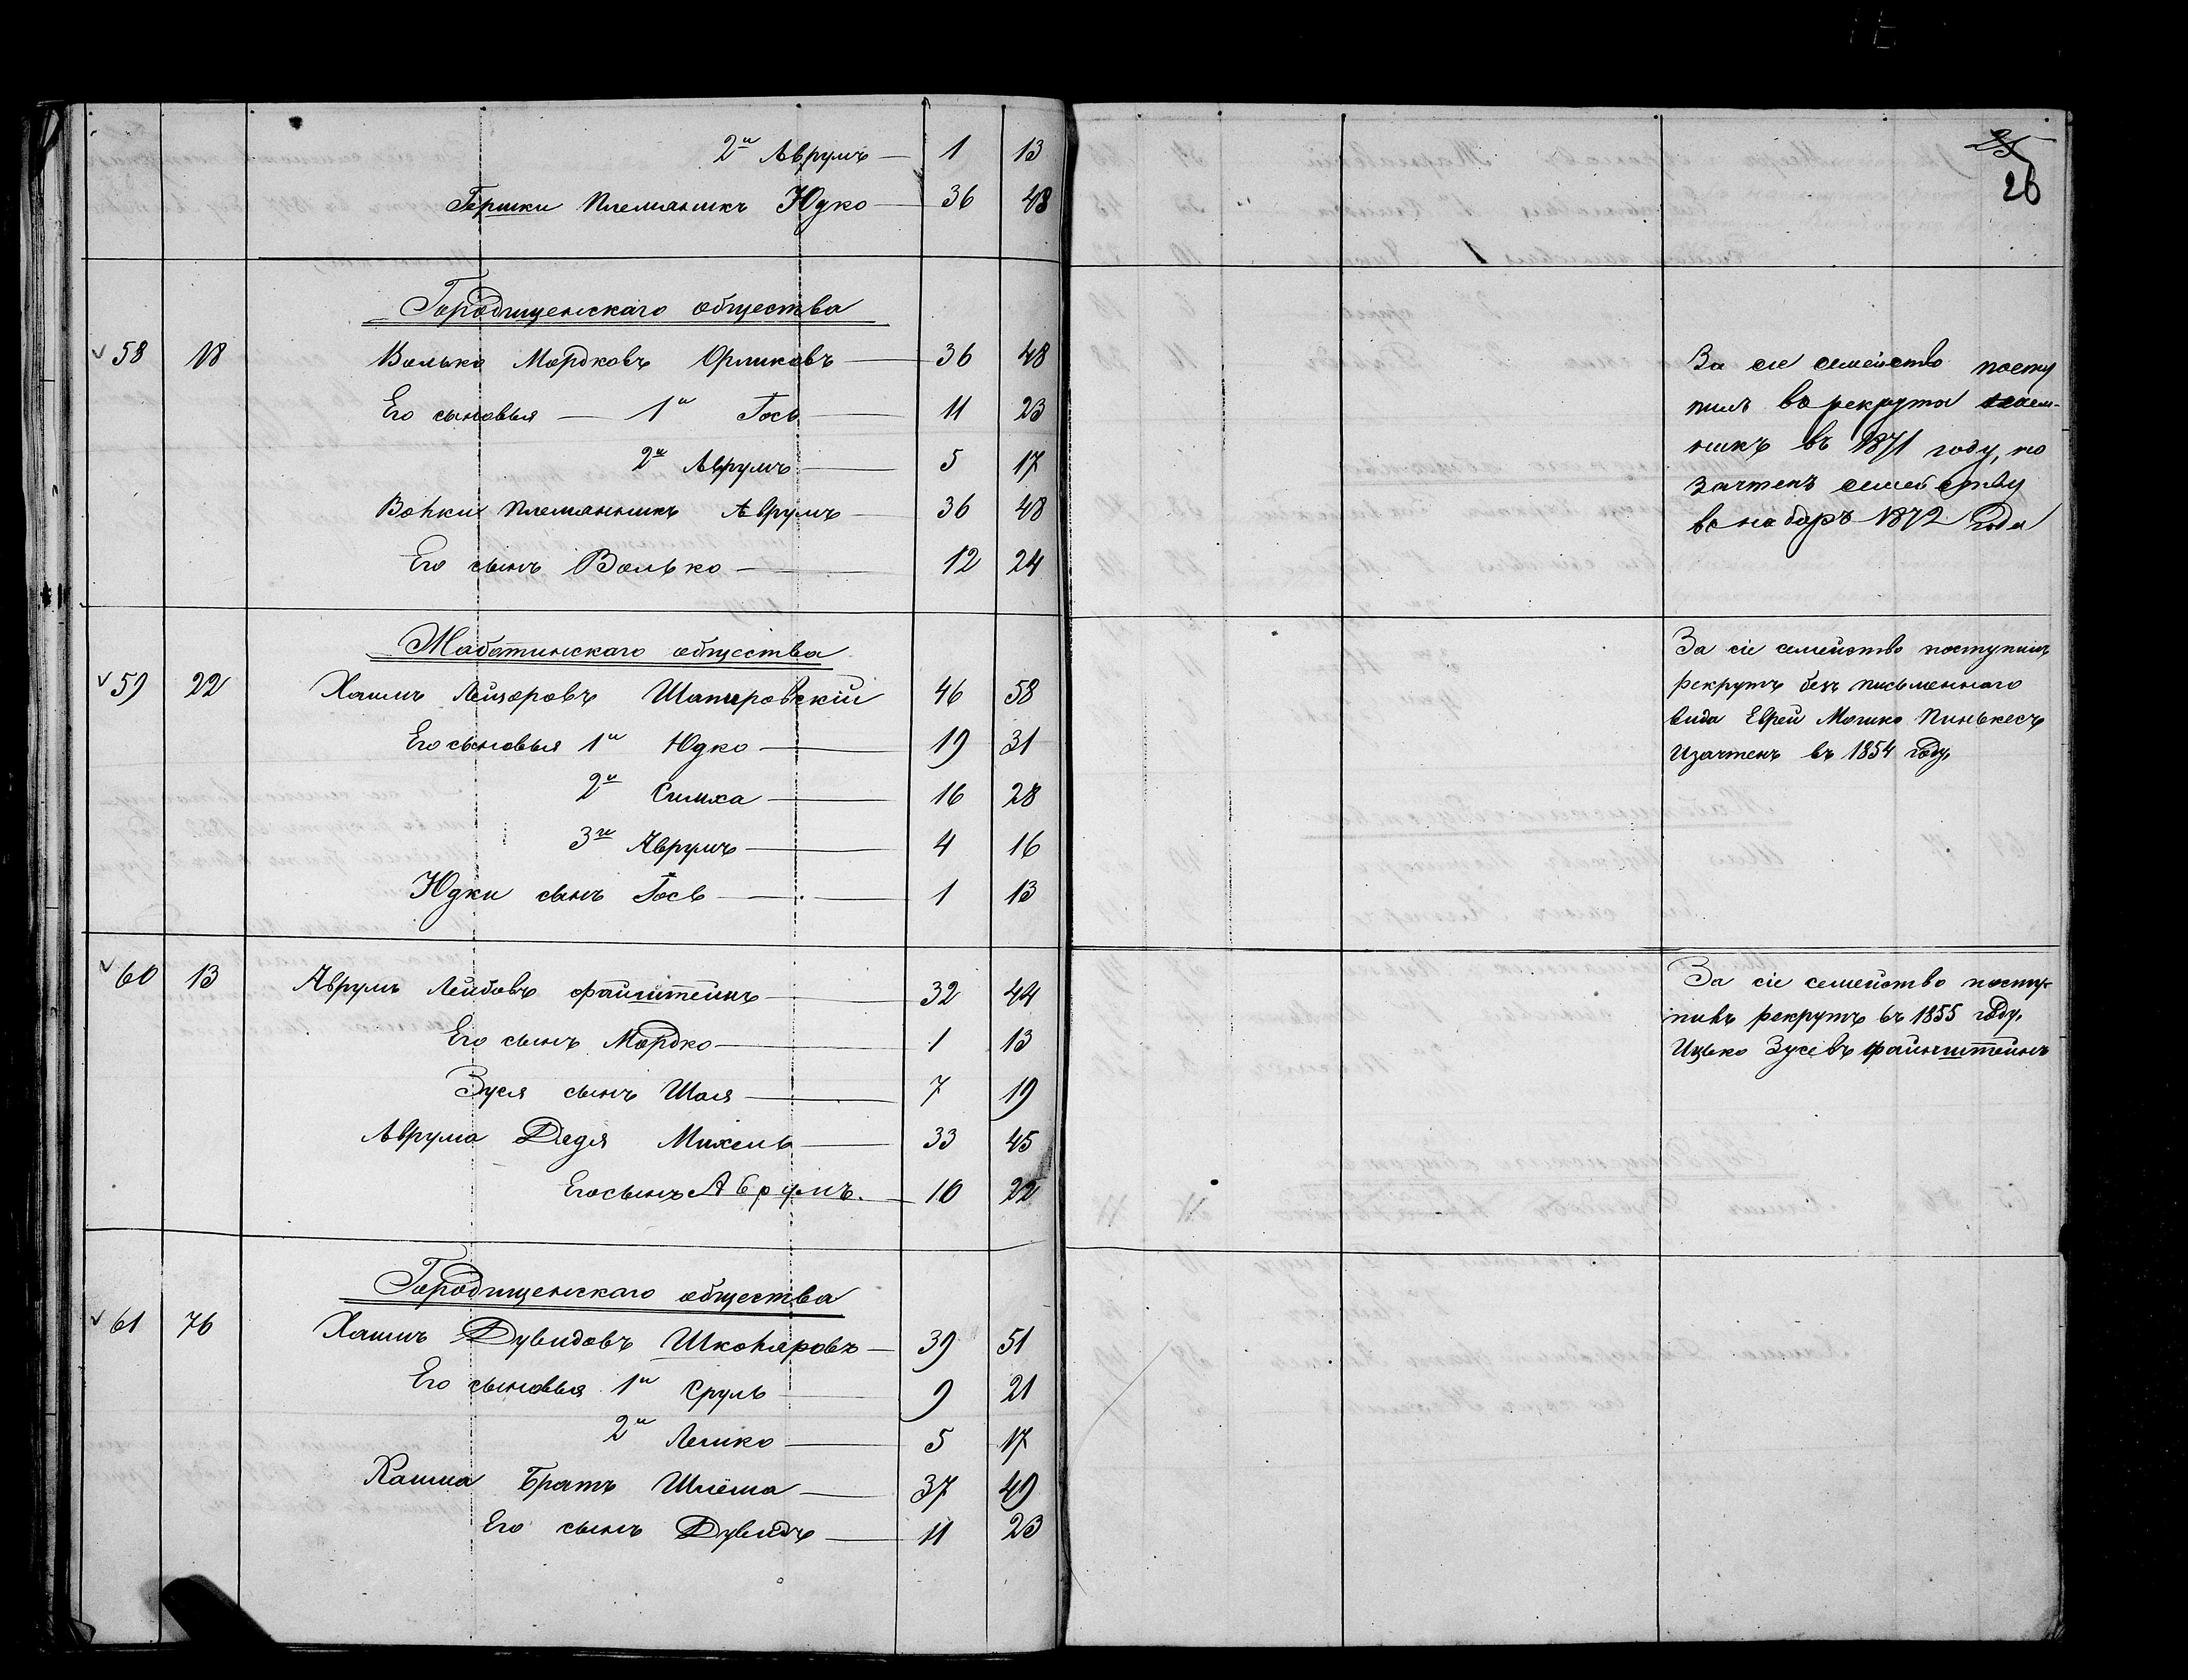 2й Аврумъ — 1 13
Гершки племяникъ Юдко — 36 48
Городищенскаго общества
58 18 Волько Мордковъ Орликовъ — 36 48
Его сыновья — 1й Іось — 11 23
2й Аврумъ — 5 17
Вольки племянникъ Аврумъ — 36 48
Его сынъ Волько — 12 24
Жаботинскаго общества
59 22 Хаимъ Лейзоровъ Шапировскій 46 58
Его сыновья 1й Юдко — 19 31
2й Симха — 16 28
3й Аврумъ — 4 16
Юдки сынъ Іось — 1 13
60 13 Аврумъ Лейбовъ Файнштейнъ — 32 44
Его сынъ Мордко — 1 13
Зуся сынъ Шая — 7 19
Аврума Дядя Михель — 33 45
Его сынъ Абрумъ. — 10 22
Городищенскаго общества
61 76 Хаимъ Дувидовъ Школяровъ — 39 51
Его сыновья 1й Сруль — 9 21
2й Лейко — 5 17
Хаима Братъ Шлёма — 37 49
Его сынъ Дувидъ — 11 23
25
26
За сіе семейство посту
пилъ въ рекруты наем-
никъ въ 1871 году, но
зачтенъ семейству
въ наборъ 1872 года
За сіе семейство поступилъ
рекрутъ безъ письменнаго
вида Еврей Мошко Пинькесъ
и зачтенъ въ 1854 году.
За сіе семейство посту-
пилъ рекрутъ въ 1855 году.
Ицько Зусевъ Файнштейнъ